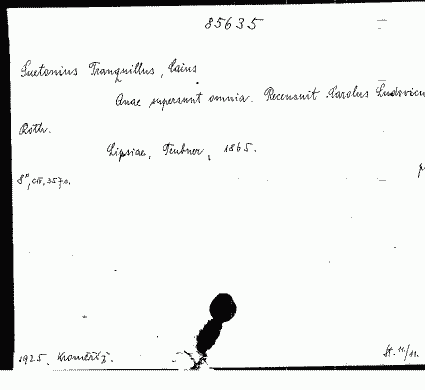 85635
Suetonius Tranquillus, Caius
Quae supersunt omnia. Recensuit Carolus Ludovicu
Roth.
Lipsiae, Teubner, 1865.
8°, CIV, 357 s.
1925. Kroměříž.
11/11.